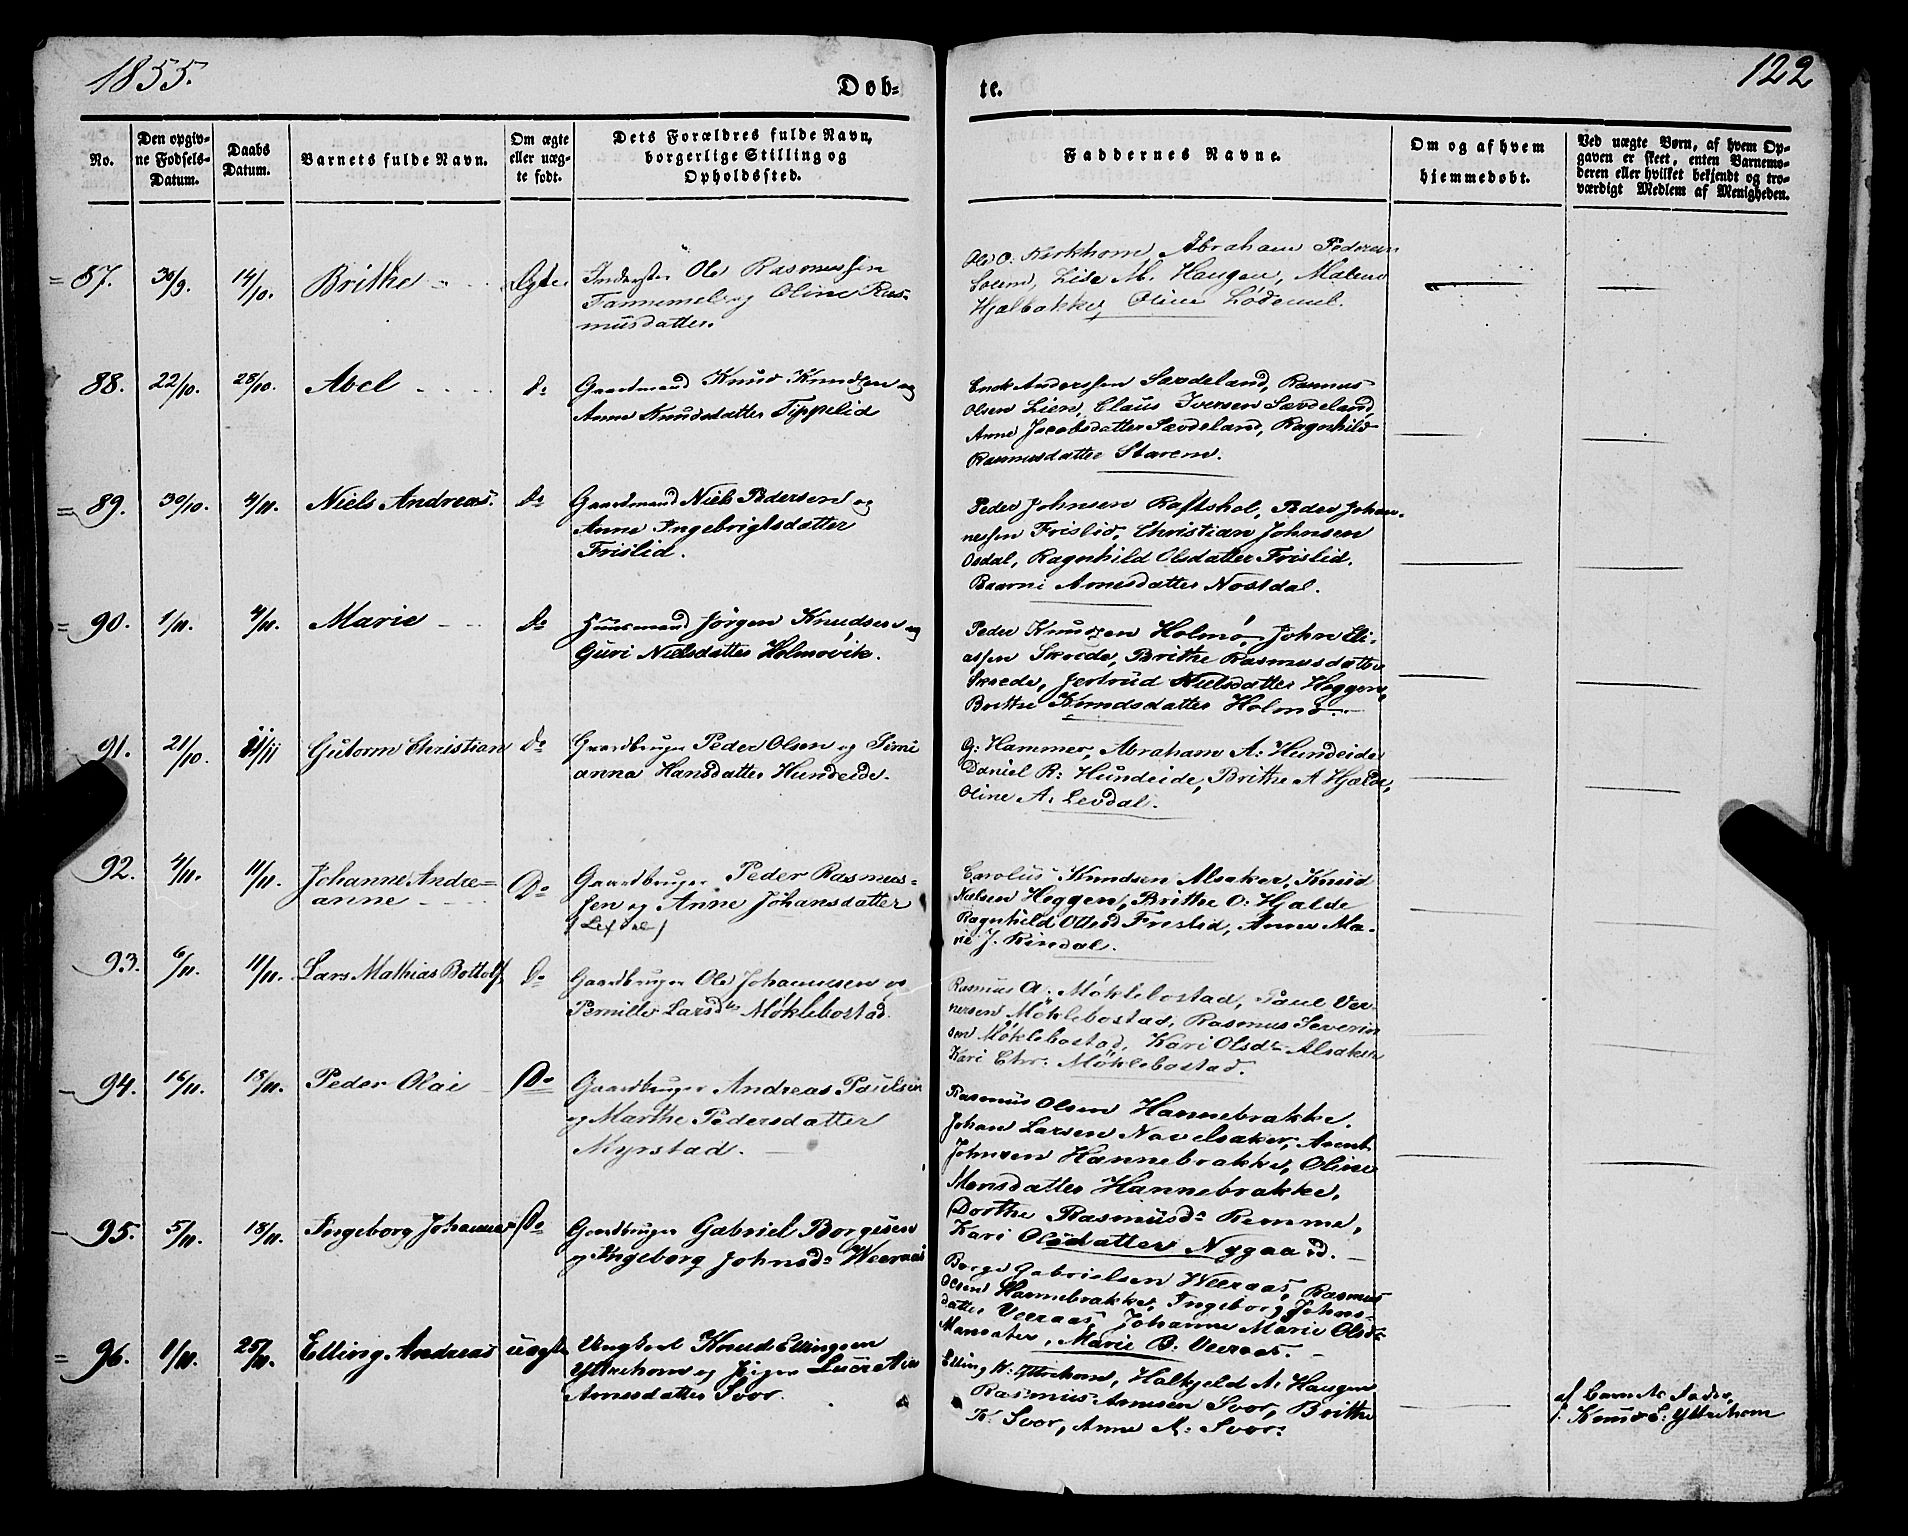 1855.
Døb-
te.
122
No.
Den opgiv-
ne Fødsels-
Datum.
Daabs
Datum.
Barnets fulde Navn.
Om ægte
eller uæg-
te født.
Dets Forældres fulde Navn,
borgerlige Stilling og
Opholdssted.
Faddernes Navne.
Om og af hvem
hjemmedøbt.
Ved uægte Børn, af hvem Op-
gaven er skeet, enten Barnemo-
deren eller hvilket bekjendt og tro-
værdigt Medlem af Menigheden.
87. 30/9. 14/10. Brithe Ægte
Inderster Ole Rasmussen
og Oline Ras-
musdatter.
Ole O. Kirkhorn, Abraham Pedersen
Soleim, Lise M. Haugen, Malene
Hjelbakke, Oline Lødemel.
88. 22/10. 28/10. Abel do
Gaardmand Knud Knudsen og
Anne Knudsdatter Tippelid
Enok Anderssen Sædeland, Rasmus
Olsen Lien, Claus Iversen Sædeland,
Anne Jacobsdatter Sædeland, Ragnhild
Rasmusdatter Starem.
89. 30/10. 4/11. Niels Andreas. do
Gaardmand Niels Pedersen og
Anne Ingebrigtsdatter
Frislid.
Peder Johnsen Raftshol, Peder Johan-
nessen Frislid, Christian Johnsen
Osdal, Ragnhild Olsdatter Frislid.
Baarni Arnesdatter Nostdal.
90. 1/11. 4/11. Marie do
Huusmand Jørgen Knudsen og
Guri Nielsdatter Holmøvik.
Peder Knudsen Holmø, John Eli-
assen Skrede, Brithe Rasmusdatter
Skrede, Jertrud Nielsdatter Heggen,
Brithe Knudsdatter Holmø.
91. 21/10. 11/11 Gutorm Christian do
Gaardbruger Peder Olsen og Simi
anna Hansdatter Hundeide.
G. Hammer, Abraham A. Hundeide
Daniel R. Hundeide, Brithe A Hjelde,
Oline A. Levdal.
92. 4/11. 11/11. Johanne Andre=
anne Do
Gaardbruger Peder Rasmus-
sen og Anne Johansdatter
Carolus Knudsen Alsaker, Knud
Nielsen Heggen, Brithe O. Hjelde
Ragnhild Ottesd Frislid, Anne Ma-
rie J. Rindal.
93. 6/11. 11/11. Lars Mathias Bottolf Do
Gaardbruger Ole Johannesen og
Pernille Larsdtr Møklebostad.
Rasmus A. Møklebostad, Paul Ver-
nersen Møklebostad, Rasmus Severin
sen Møklebostad, Kari Olsdr Alsaker
Kari Chr. Møklebostad.
94. 16/11. 18/11. Peder Olai Do
Gaardbruger Andreas Paulsen
og Marthe Pedersdatter
Myrstad.
Rasmus Olsen Hannebrakke.
Johan Larsen Navelsaker, Arent
Johnsen Hannebrakke, Oline
Monsdatter Hannebrakke,
Dorthe Rasmusdr Remme,
Kari Olsdatter Nygaard.
95. 5/11. 18/11. Ingeborg Johanne Do
Gaardbruger Gabriel Børgesen
og Ingeborg Johnsdr Weeraas
Børge Gabrielsen Weeraas, Rasmus
Olsen Hannebrakke, Ingeborg Johns-
datter Veeraas, Johanne Marie Olsdr
Marie B. Veeraas.
96. 1/11. 25/11. Elling Andreas uægte
Ungkarl Knud Ellingsen
Yttrehorn og Pigen Lucretia
Arnesdatter Svor.
Elling K. Yttrehorn, Halkjeld A. Haugen
Rasmus Arnesen Svor, Brithe
K. Svor, Anne A. Svor.
af Barnets Fader,
Knud E. Yttrehorn